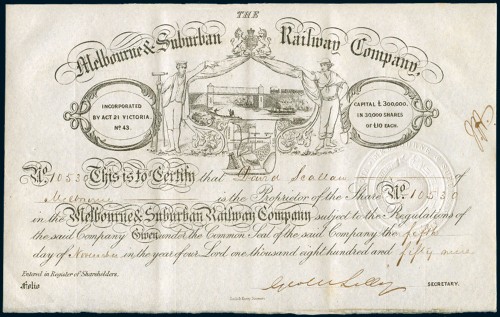 THE
Melbourne & Suburban Railway Company,
INCORPORATED
BY ACT 21 VICTORIA.
No. 43.
CAPITAL £300,000,
IN 30,000 SHARES
OF £10 EACH.
No. 10530 This is to Certify that David Scallan of
Melbourne is the Proprietor of the Share No. 10530
in the Melbourne & Suburban Railway Company, subject to the Regulations of
the said Company Given under the Common Seal of the said Company the fifth
day of November in the year of our Lord, one thousand eight hundred and fifty nine
Entered in Register of Shareholders.
Folio
SECRETARY.